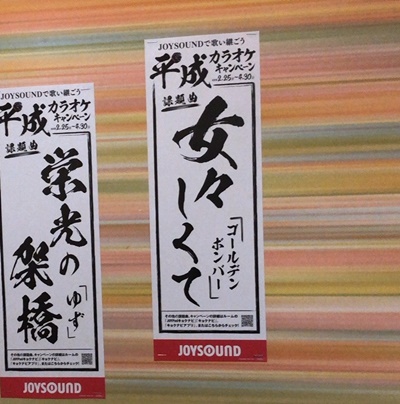 JOYSOUNDで歌い継ごう
平成
カラオケ
キャンペーン
2.25㊊-4.30㊋
課題曲
栄光の
架橋
「ゆず」
JOYSOUND
JOYSOUNDで歌い継ごう
平成
カラオケ
キャンペーン
2.25㊊-4.30㊋
課題曲
女々
しくて
「ゴールデン
ボンバー」
JOYSOUND